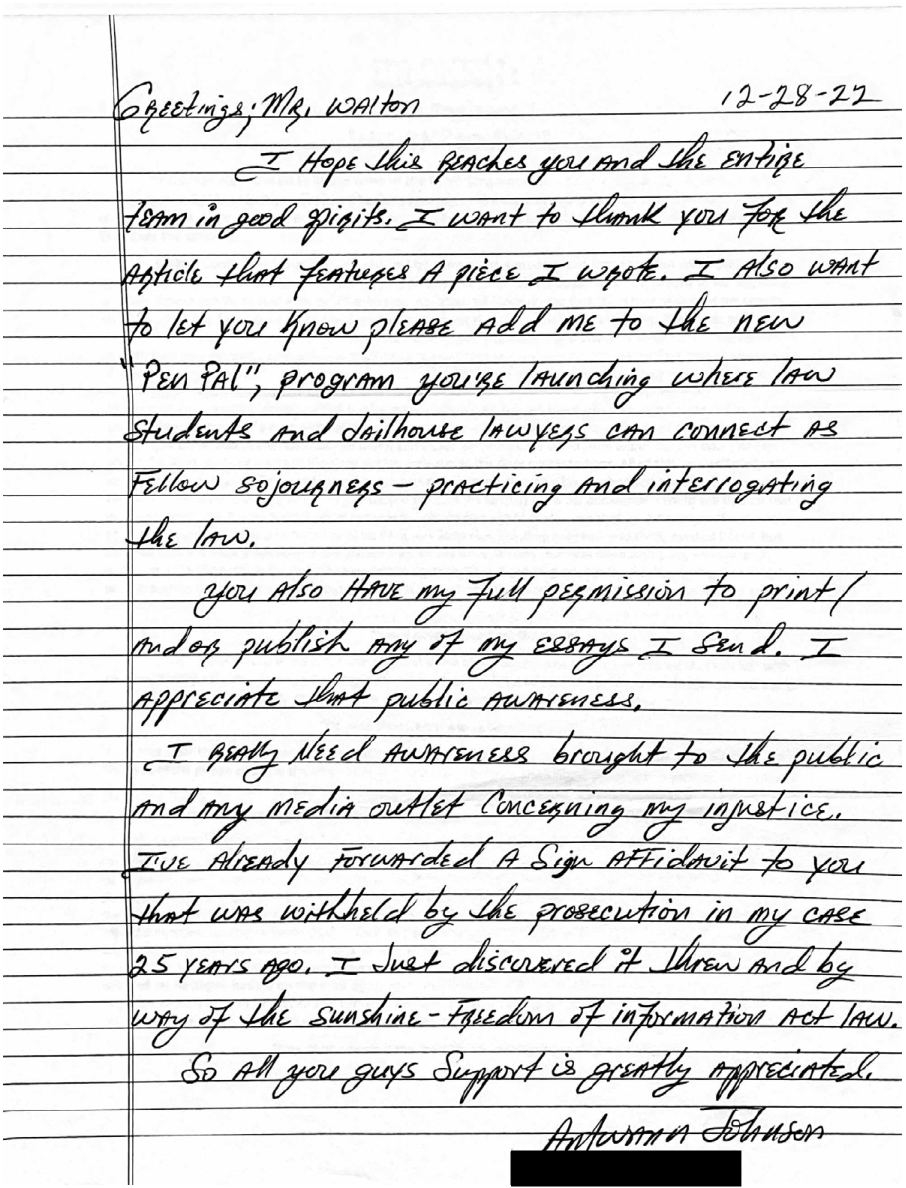 Greetings; Mr, Walton 12-28-22
I Hope this reaches you and the entire
team in good spirits. I want to thank you for the
article that features a piece I wrote. I also want
to let you know please add me to the new
"Pen Pal", program you're launching where law
students and Jailhouse lawyers can connect as
Fellow sojourners - practicing and interrogating
the law.
you also have my full permission to print/
and or publish any of my essays I send. I
appreciate that public awareness.
I really Need awareness brought to the public
and any media outlet concerning my injustice.
I've already forwarded a Sign Affidavit to you
that was withheld by the prosecution in my case
25 years ago. I Just discovered it threw and by
way of the sunshine - Freedom of information Act law.
So all you guys Support is greatly appreciated.
Antwann Johnson